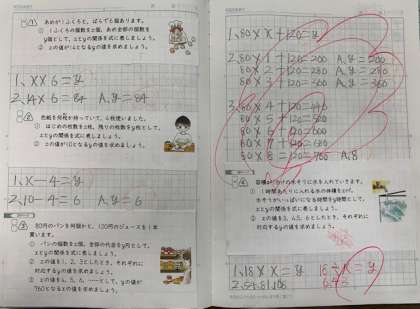 あめが1ふくろと，ばらで6こあります。
① 1ふくろの個数をx個，あめ全部の個数を
y個として，xとyの関係を式に表しましょう。
1、x×6=y
2、14×6=84 A、y=84
色紙を何枚か持っていて，4枚使いました。
① はじめの枚数をx枚，残りの枚数をy枚として，
xとyの関係を式に表しましょう。
② xの値が10となるyの値を求めましょう。
1、x-4=y
2、10-4=6 A、y=6
80円のパンを何個かと，120円のジュースを1本
買います。
① パンの個数をx個，全部の代金をy円として，
xとyの関係を式に表しましょう。
② xの値を1，2，3としたとき，それぞれに
対応するyの値を求めましょう。
③ xの値を4，5，6，……として，yの値が
760となるxの値を求めましょう。
1、80×x+120=y
2、80×1+120=200 A、y=200
80×2+120=280 A、y=280
80×3+120=360 A、y=360
3、80×4+120=440
80×5+120=520
80×6+120=600
80×7+120=680
80×8+120=760 A、8
① 1時間あたりに入れる水の体積をxm³，
水そうがいっぱいになる時間をy時間として，
xとyの関係を式に表しましょう。
② xの値を3，4.5，6としたとき，それぞれに
対応するyの値を求めましょう。
1、18×x=y 18÷x=y
2、54、81、108 6、4、3